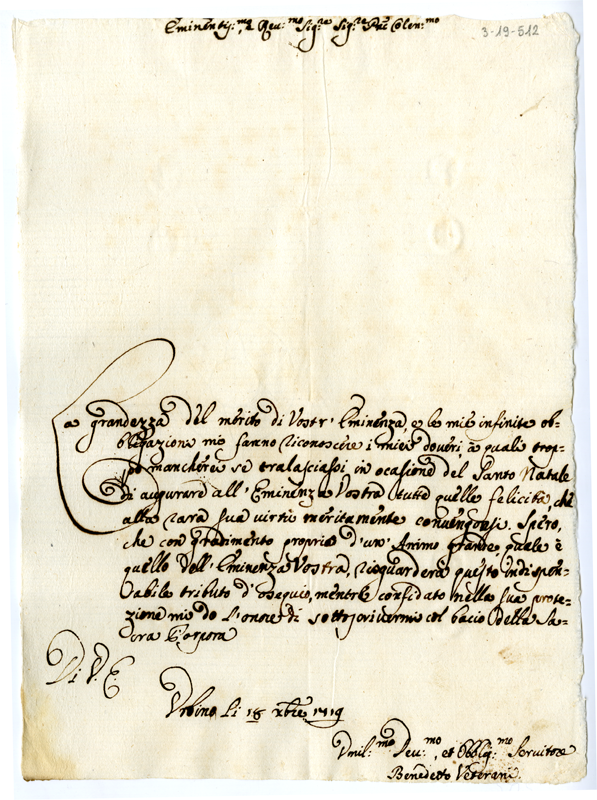 Eminentis.mo, e Reu.mo Sig.re Sig.re Pne Colen.mo
3-19-512
La grandezza del merito di Vostr' Eminenza, e le mie infinite ob-
bligazione mi fanno riconoscere i miei doueri, a quali trop-
po mancherei se tralasciassi in ocasione del Santo Natale
di augurare all'Eminenza Vostra tutte quelle felicità, che
alla rara sua virtù meritamente conuengonsi. Spero,
che con gradimento proprio d'un' Animo grande, quale è
quello dell'Eminenza Vostra, risguarderà questo indispen-
sabile tributo d'osequio, mentre confidato nella sua prote-
zione mi do l'onore di sottoscriuermi col bacio della Sa-
cra Porpora
Di V. E.
Vrbino li 18 xbre 1719
Vmil.mo Deu.mo, et Obblig.mo Seruitore
Benedetto Veterani